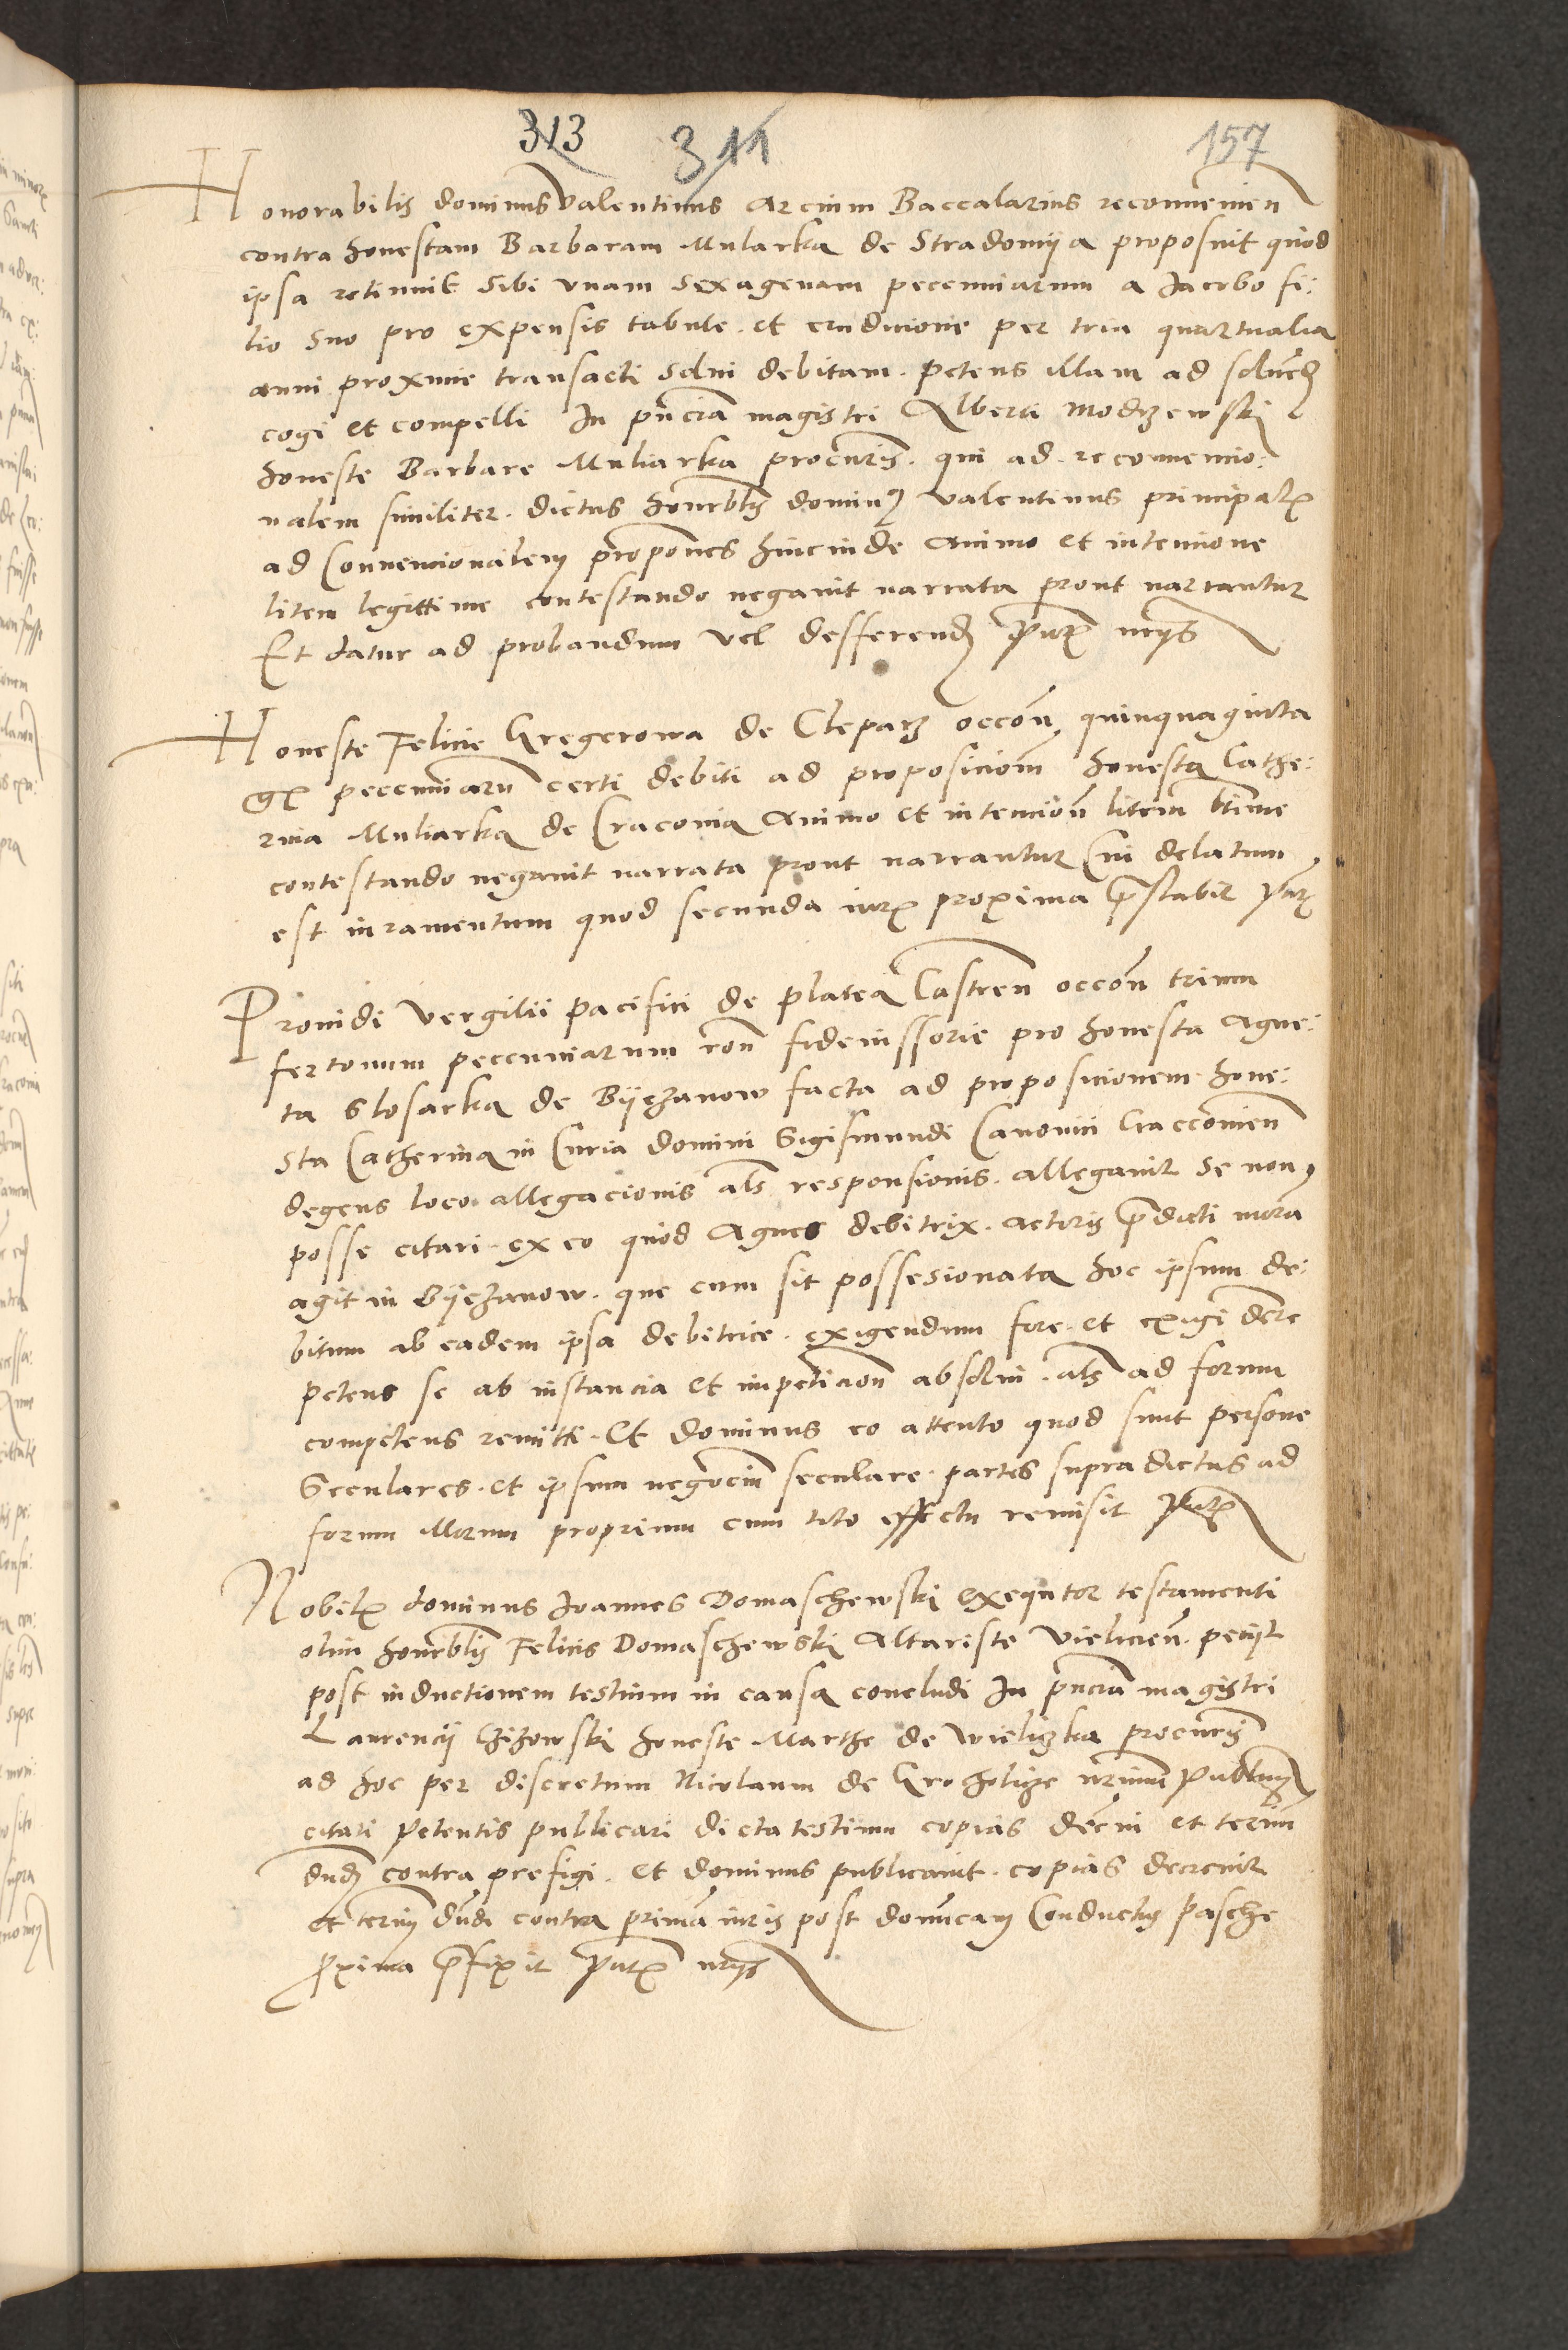 313 311 157
Honorabilis dominus Valentinus Arcium Baccalarius reconvenien
contra honestam Barbaram Mularka de Stradomija proposuit quod
ipsa retinuit sibi unam sexagenam peccuniarum a Jacobo fi:
lio suo pro expensis tabule et erudicione per tria quartualia
anni proxime transacti solvi debitam. petens illam ad solvend
cogi et compelli In pñcia magistri Alberti Modrzewski
honeste Barbare Muliarka procuris. qui ad reconvencio:
nalem similiter. dictus honrblis dominus Valentinus principalis
ad Convencionalem propones hincinde animo et intencione
litem legittime contestando negavit narrata prout narrantur
Et datur ad probandum vel defferend pntibus
Honeste Felicie Gregerowa de Cleparz occõn quinquaginta
gr peccuniaru certi debiti ad proposiciom honesta Cathe:
rina Muliarka de Cracovia animo et intencion litem ltime
contestando negavit narrata prout narrantur Cui delatum
est iuramentum quod secunda iuris proxima prestabit pntibus
Providi Vergilii pacifici de platea Castren occõn trium
fertonum peccuniarum roñ fideiussorie pro honesta Agne:
ta Slosarka de Byezanow facta ad proposicionem hone:
sta Catherina in Curia domini Sigismundi Canonici Craccovien
degens loco allegacionis als responsionis. allegavit se non
posse citari ex eo quod Agnes debitrix. actoris predicti mora
agit in Byezanow. que cum sit possesionata hoc ipsum de:
bitum ab eadem ipsa debitrice. exigendum fore et exigi dere
petens se ab instancia et impeticion absolvi. als ad forum
competens remitti. Et dominus eo attento quod sunt persone
Seculares. et ipsum negocium seculare. partes supradictas ad
forum illorum proprium cum toto effectu remisit pntibus
Nobilis dominus Joannes Domaschewski exequtor testamenti
olim honrblis Felicis Domaschewski Altariste Vielicien. peciit
post inductionem testium in causa concludi In pñcia magistri
Laurencij Czizowski honeste Marthe de Wieliczka procuris
ad hoc per discretum Nicolaum de Grocholicze nrium publicum
citati petentis publicari dicta testium copias decñi et terim
dnd contra prefigi. et dominus publicavit. copias decrevit
et terim dndi contra prima iuris post domicam Conductus pasche
proxima prefixit pntibus